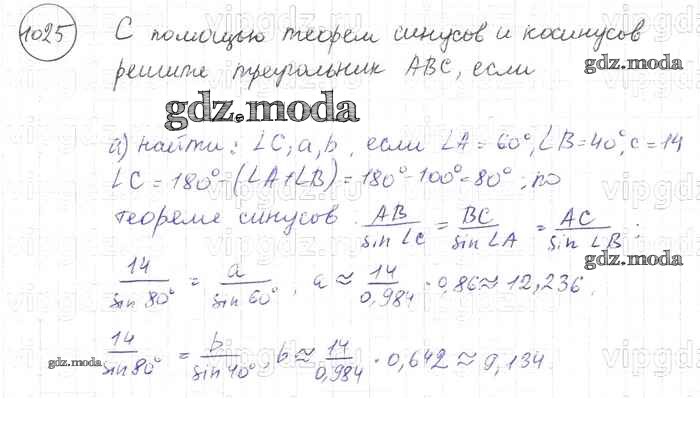 1025 С помощью теорем синусов и косинусов
решите треугольник ABC, если
gdz.moda
gdz.moda
а) найти: ∠C; a, b, если ∠A = 60°, ∠B = 40°, c = 14
∠C = 180° - (∠A + ∠B) = 180° - 100° = 80°; по
теореме синусов: AB/sin ∠C = BC/sin ∠A = AC/sin ∠B;
gdz.moda
14/sin 80° = a/sin 60°, a ≈ 14/0,984 · 0,86 ≈ 12,236.
14/sin 80° = b/sin 40°, b ≈ 14/0,984 · 0,642 ≈ 9,134.
gdz.moda